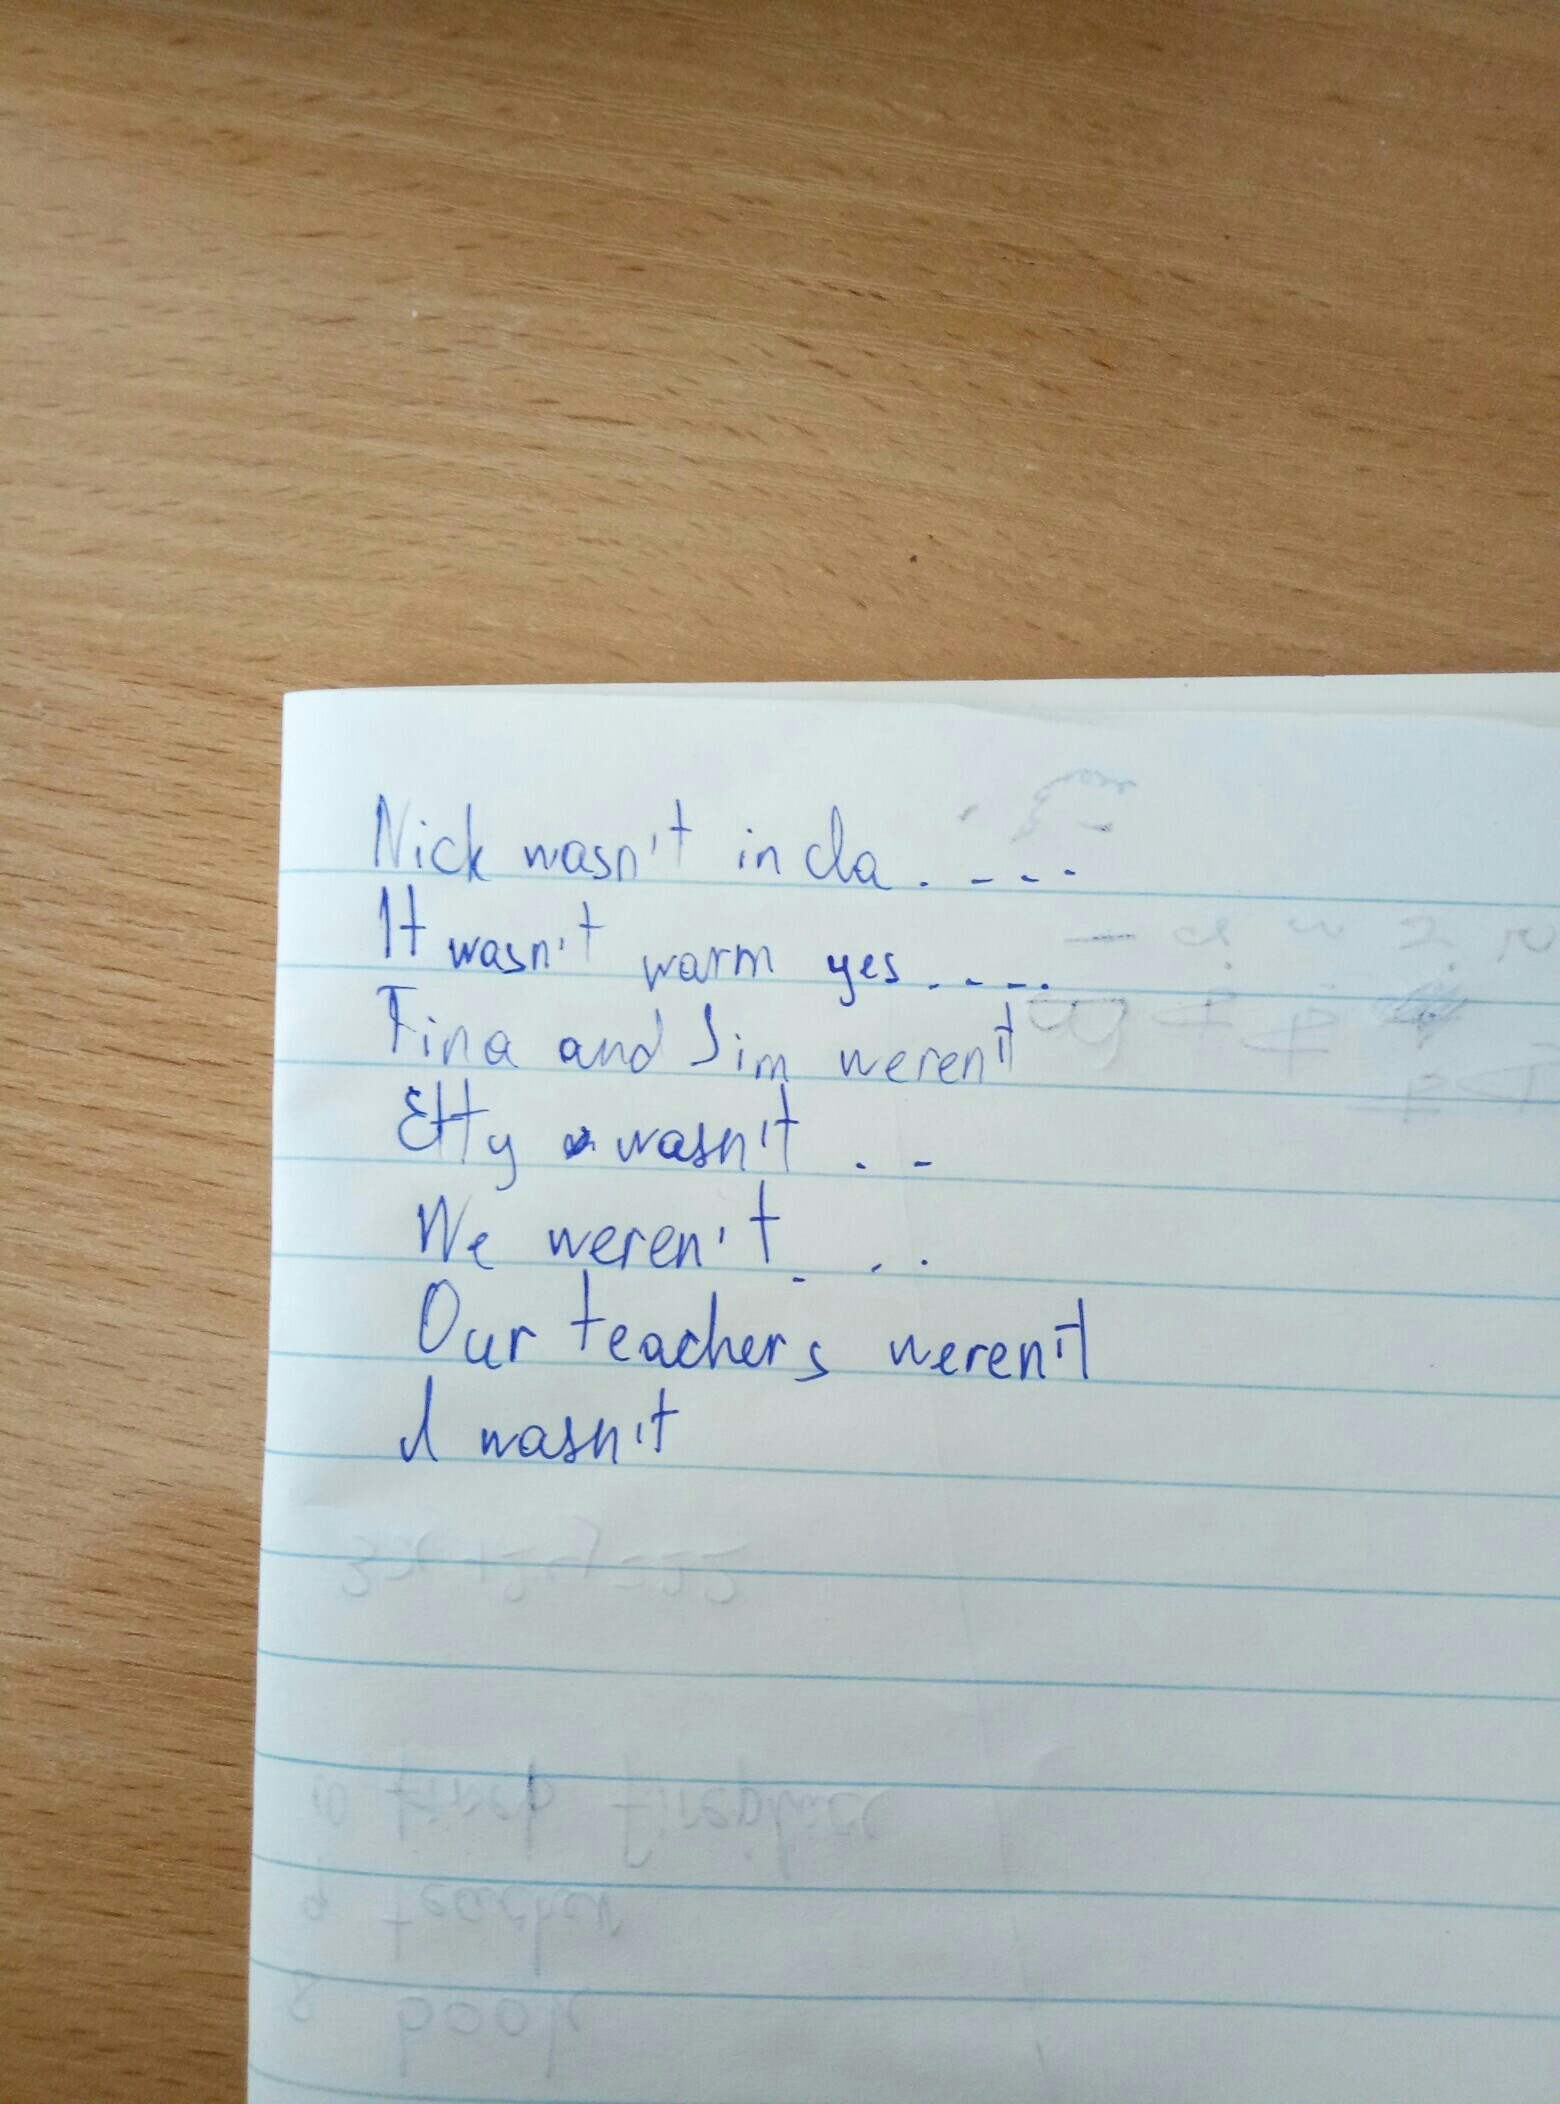 Nick wasn't in cla. - - -
It wasn't warm yes. - - .
Tina and Jim weren't
Etty wasn't . -
We weren't - . .
Our teachers weren't
I wasn't